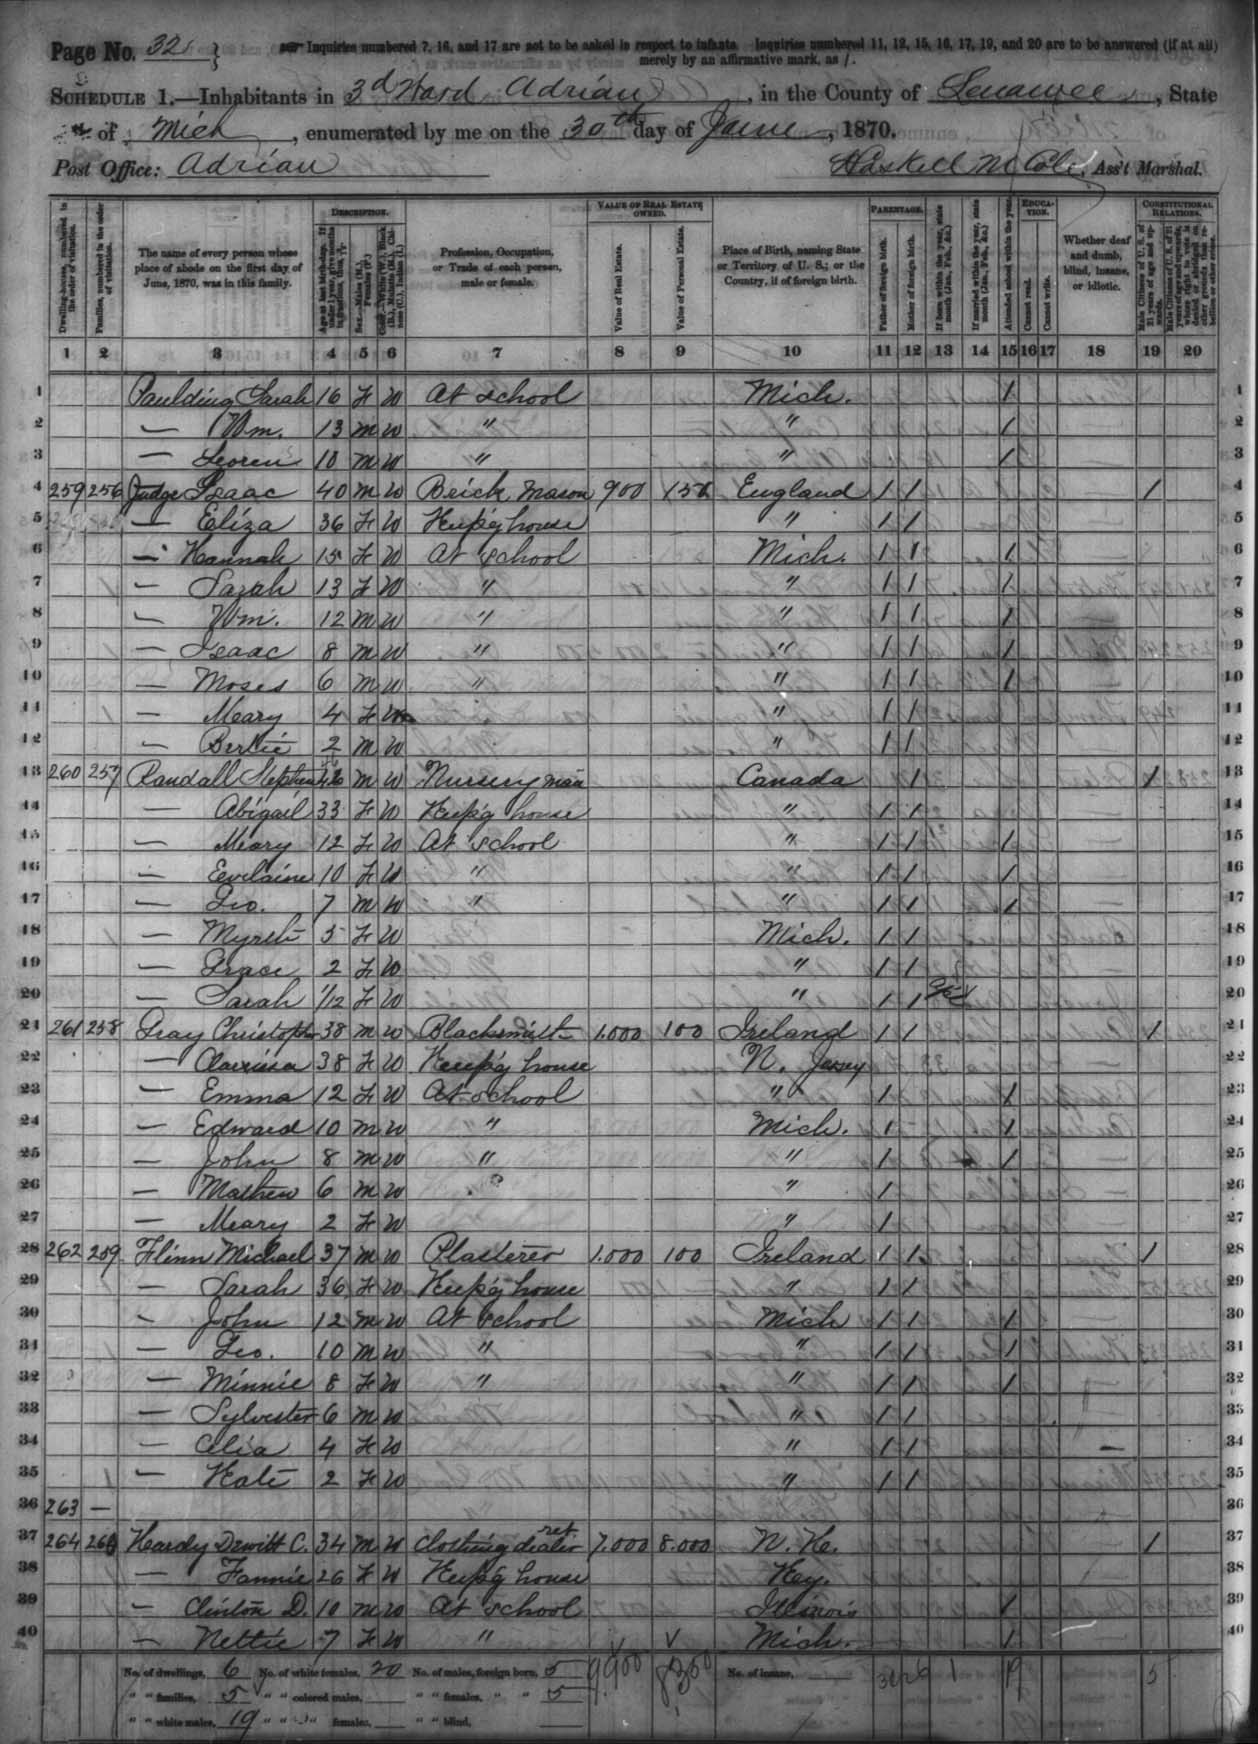 Page No. 32
Inquiries numbered 7, 16, and 17 are not to be asked in respect to infants. Inquiries numbered 11, 12, 15, 16, 17, 19, and 20 are to be answered (if at all)
merely by an affirmative mark, as /.
SCHEDULE 1.—Inhabitants in 3d Ward Adrian, in the County of Lenawee, State
of Mich, enumerated by me on the 30th day of June, 1870.
Post Office: Adrian Haskell M Cole, Ass't Marshal.
DESCRIPTION. VALUE OF REAL ESTATE OWNED. PARENTAGE. EDUCATION. CONSTITUTIONAL RELATIONS.
Dwelling-houses, numbered in the order of visitation.
Families, numbered in the order of visitation.
The name of every person whose place of abode on the first day of June, 1870, was in this family.
Sex.—Males (M.), Females (F.)
Profession, Occupation, or Trade of each person, male or female.
Value of Real Estate.
Value of Personal Estate.
Place of Birth, naming State or Territory of U. S.; or the Country, if of foreign birth.
Father of foreign birth.
Mother of foreign birth.
If born within the year, state month (Jan., Feb., &c.)
If married within the year, state month (Jan., Feb., &c.)
Attended school within the year.
Cannot read.
Cannot write.
Whether deaf and dumb, blind, insane, or idiotic.
Male Citizens of U. S. of 21 years of age and upwards.
1 2 3 4 5 6 7 8 9 10 11 12 13 14 15 16 17 18 19 20
1 Paulding Sarah 16 F W At school Mich. / 1
2 — Wm. 13 M W " " / 2
3 — Loren 10 M W " " / 3
4 259 256 Judge Isaac 40 M W Brick Mason 900 150 England / / / 4
5 — Eliza 36 F W Keep'g house " / / 5
6 — Hannah 15 F W At school Mich. / / / 6
7 — Sarah 13 F W " " / / / 7
8 — Wm. 12 M W " " / / / 8
9 — Isaac 8 M W " " / / / 9
10 — Moses 6 M W " " / / / 10
11 — Meary 4 F W " / / 11
12 — Bertie 2 M W " / / 12
13 260 257 Randall Stephen M W Nursery man Canada / / 13
14 — Abigail 33 F W Keep'g house " / / 14
15 — Meary 12 F W At school " / / / 15
16 — Evelaine 10 F W " " / / / 16
17 — Geo. 7 M W " " / / / 17
18 — Myrtle 5 F W Mich. / / 18
19 — Grace 2 F W " / / 19
20 — Sarah 1/12 F W " / / 20
21 261 258 Gray Christopher 38 M W Blacksmith 1.000 100 Ireland / / / 21
22 — Clarrissa 38 F W Keep'g house N. Jersey 22
23 — Emma 12 F W At school " / / 23
24 — Edward 10 M W " Mich. / / 24
25 — John 8 M W " " / / 25
26 — Mathew 6 M W " / 26
27 — Meary 2 F W " / 27
28 262 259 Flinn Michael 37 M W Plasterer 1.000 100 Ireland / / / 28
29 — Sarah 36 F W Keep'g house " / / 29
30 — John 12 M W At school Mich / / / 30
31 — Geo. 10 M W " " / / / 31
32 — Minnie 8 F W " " / / / 32
33 — Sylvester 6 M W " / / 33
34 — Celia 4 F W " / / — 34
35 — Kate 2 F W " / / 35
36 263 — 36
37 264 260 Hardy Dewitt C. 34 M W Clothing dealer ret 7.000 8.000 N. H. / 37
38 — Fannie 26 F W Keep'g house Key. 38
39 — Clinton D. 10 M W At school Illinois / 39
40 — Nettie 7 F W " Mich. / 40
No. of dwellings, 6 No. of white females, 20 No. of males, foreign born, 5 9900 8350 No. of insane, 1 19 5
" " families, 5 " " colored males, " " females, " " 5
" " white males, 19 " " " females, " " blind,